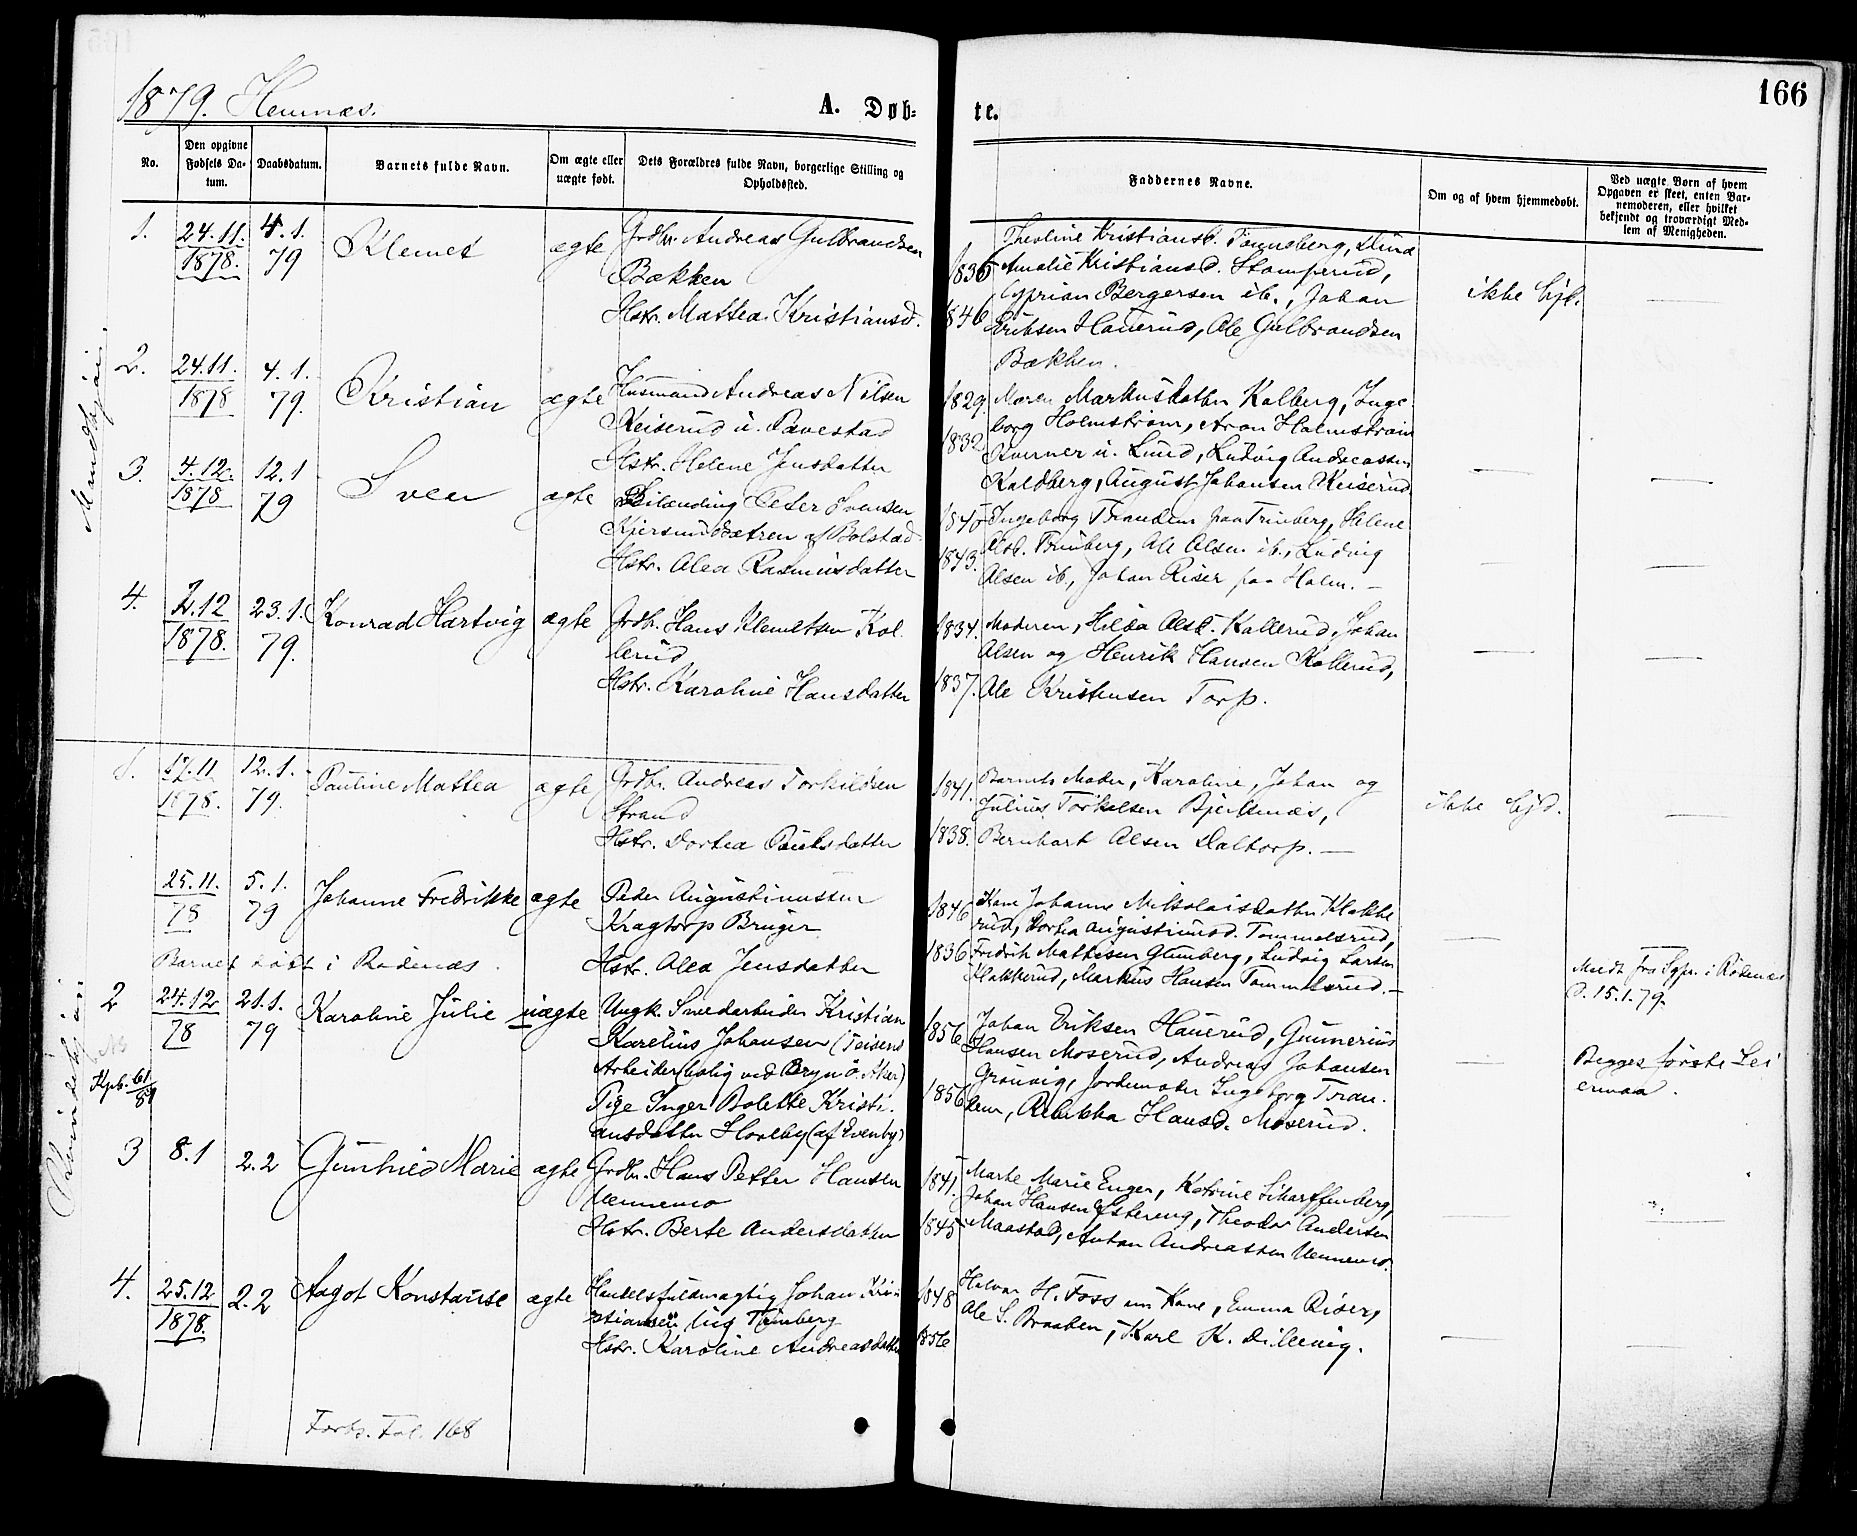 166
1879. Hemnæs.
A. Døb=
te.
No.
Den opgivne Fødsels Datum.
Daabsdatum.
Barnets fulde Navn.
Om ægte eller uægte født.
Dets Forældres fulde Navn, borgerlige Stilling og Opholdssted.
Faddernes Navne.
Om og af hvem hjemmedøbt.
Ved uægte Børn af hvem Opgaven er skeet, enten Barnemoderen, eller hvilket bekjendt og troværdigt Medlem af Menigheden.
Mandkjøn.
1.
24.11.
1878.
4.1.
79
Klemet
ægte
Grdbr. Andreas Gulbrandsen
Bækken
Hstr. Mattea Kristiansd.
1836
1846
Theoline Kristiansd. Tønnsberg,
Amalie Kristiansd. Stomperud,
Cyprian Bergersen ib., Johan
Eriksen Haverud, Ole Gulbrandsen
Bækken.
ikke hjd.
2.
24.11.
1878
4.1.
79.
Kristian
ægte
Husmand Andreas Nilsen
Keiserud u. Ravestad
Hstr. Helene Jensdatter
1829
1832
Maren Markusdatter Kolberg, Inge-
borg Holmstrøm, Aron Holmstrøm
Kverner u. Lund, Ludvig Andreassen
Kaldberg, August Johansen Keiserud
3.
4.12.
1878
12.1
79
Sven
ægte
Peter Svensen
af Bolstad
Hstr. Olea Rasmusdatter
1845
1843.
Ingeborg Trandem paa Trinberg, Helene
Trinberg, Ole Olsen ib., Ludvig
Olsen ib., Johan Riser paa Holm.
4.
2.12
1878.
23.1.
79.
Konrad Hartvig
ægte
Grdbr. Hans Klemetsen Kol-
lerud
Hstr. Karoline Hansdatter
1834.
1837.
Moderen, Hilda Olsd. Kollerud, Johan
Olsen og Henrik Hansen Kollerud,
Ole Kristensen Torp.
Kvindekjøn.
1.
17.11
1878.
12.1.
79.
Pauline Mattea
ægte
Grdbr. Andreas Torkildsen
Strand
Hstr. Dortea Paulsdatter
1841.
1838.
Barnets Moder, Karoline, Johan og
Julius Torkelsen Bjerknæs,
Bernhart Olsen Daltorp.
ikke hjd.
25.11.
78
5.1.
79
Johanne Fredrikke
ægte
Peder Augustinussen
Kragtorp Bruger
Hstr. Olea Jensdatter
Barnet døbt i Rødenæs.
1846
1836
Kone Johanne Nikolaisdatter Klokke-
rud, Dortea Augustinusd. Tommelsrud,
Fredrik Mathisen Gunberg, Ludvig Larsen
Klokkerud, Markus Hansen Tommelsrud.
Medd. fra Sgpr. i Rødenæs
d. 15.1.79.
2
Kpb. 61/89
24.12
78
21.1.
79
Karoline Julie
uægte
Ungk. Smedarbeider Kristian
Karelius Johansen (Teisens
Arbeiderbolig ved Bryn Ø. Aker)
Pige Inger Bolette Kristi-
ansdatter Hvalby (af Evenby)
1856
1856
Johan Eriksen Haverud, Gunnerius
Hansen Moserud, Andreas Johansen
Grønvig, Jordemoder Ingeborg Tran-
dem, Rebekka Hansd. Moserud.
Begges første Lei
ermaal.
3
8.1
2.2
Gunhild Marie
ægte
Grdbr. Hans Petter Hansen
Unnemo
Hstr. Berte Andersdatter
1841.
1845
Marthe Marie Enger, Katrine Scharffenberg,
Johan Hansen Østereng, Theodor Andersen
Maastad, Anton Andreassen Unnemo.
4.
25.12
1878.
2.2
Aagot Konstanse
ægte
Handelsfuldmægtig Johan Kri-
stiansen Trinberg
Hstr. Karoline Andreasdatter
1848
1856
Halvor H. Foss m Kone, Emma Riser,
Ole S. Braaten, Karl K. Dillevig.
Forts. Fol. 168